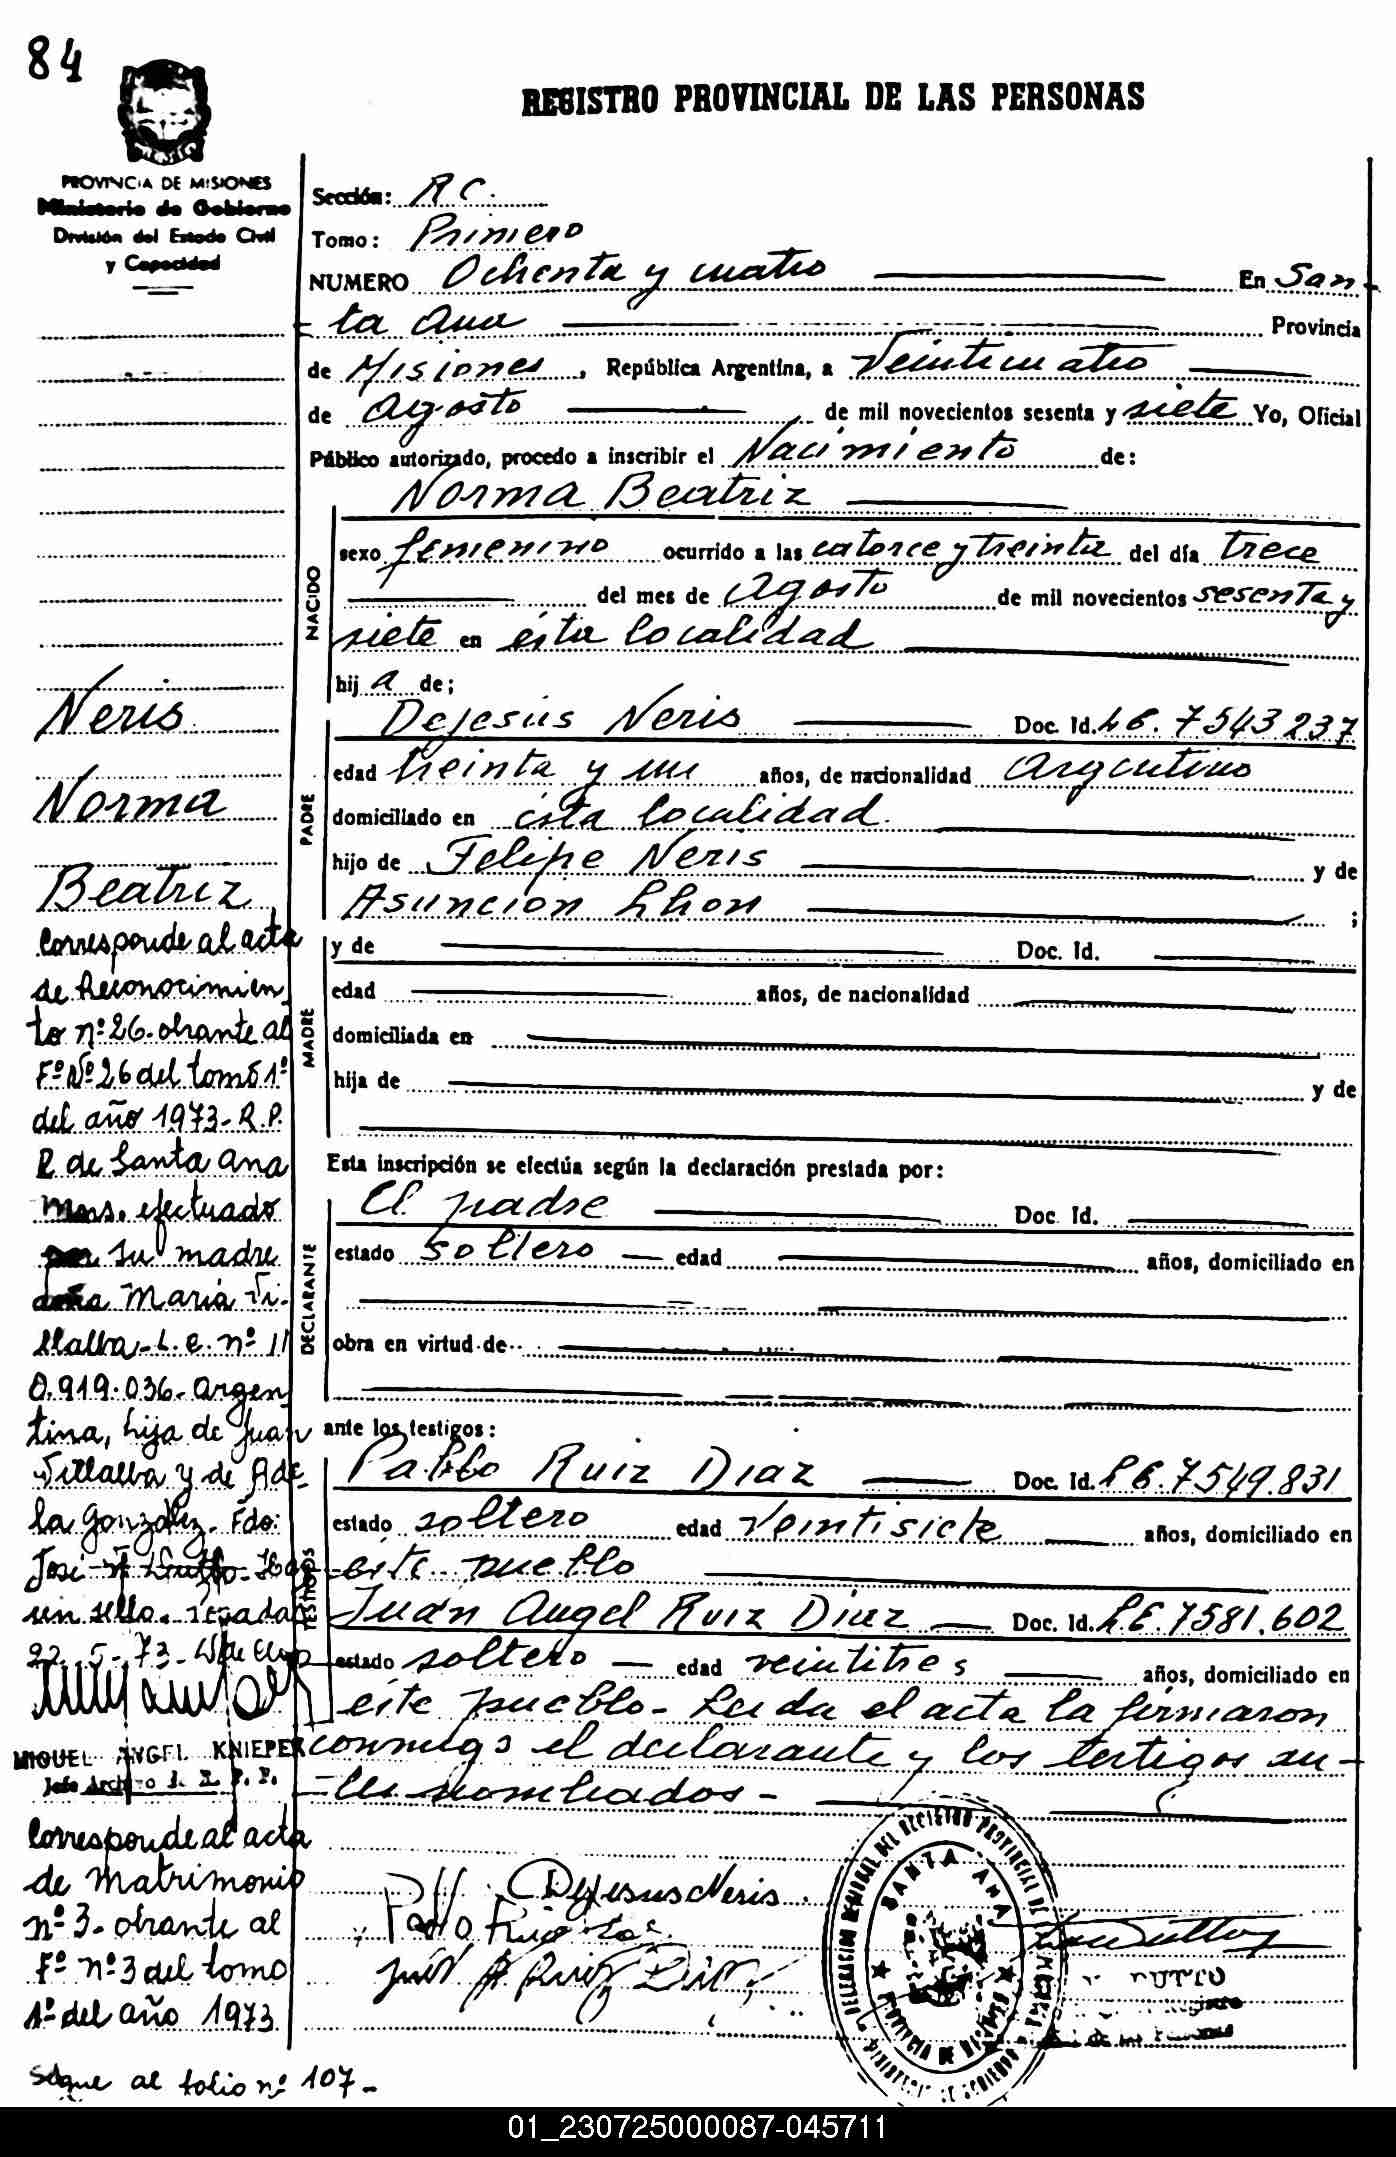 84
REGISTRO PROVINCIAL DE LAS PERSONAS
PROVINCIA DE MISIONES
Ministerio de Gobierno
División del Estado Civil
y Capacidad
Sección: R C.
Tomo: Primero
NUMERO Ochenta y cuatro En San-
ta Ana Provincia
de Misiones, República Argentina, a Veinticuatro
de Agosto de mil novecientos sesenta y siete Yo, Oficial
Público autorizado, procedo a inscribir el Nacimiento de:
Norma Beatriz
NACIDO
sexo femenino ocurrido a las catorce y treinta del día trece
del mes de Agosto de mil novecientos sesenta y
siete en ésta localidad
hij a de;
PADRE
Dejesús Neris Doc. Id. LE. 7543237
edad treinta y un años, de nacionalidad Argentino
domiciliado en ésta localidad.
hijo de Felipe Neris y de
Asuncion Lhon ;
MADRE
y de Doc. Id.
edad años, de nacionalidad
domiciliada en
hija de y de
Esta inscripción se efectúa según la declaración prestada por:
DECLARANTE
El padre Doc. Id.
estado soltero edad años, domiciliado en
obra en virtud de
ante los testigos:
TESTIGOS
Pablo Ruiz Diaz Doc. Id. LE. 7549.831
estado soltero edad Veintisiete años, domiciliado en
este pueblo
Juan Angel Ruiz Diaz Doc. Id. LE. 7581.602
estado soltero edad veintitres años, domiciliado en
este pueblo- Leida el acta la firmaron
conmigo el declarante y los testigos an-
tes nombrados-
Dejesus Neris
Juan A Ruiz Diaz
DUTTO
DELEGACION REGIONAL DEL REGISTRO PROVINCIAL DE LAS PERSONAS
SANTA ANA
Neris
Norma
Beatriz
Corresponde al acta
de Reconocimien
to nº 26. obrante al
Fº Nº 26 del tomo 1º
del año 1973- R.P.
P. de Santa Ana
Mnes. efectuado
por su madre
doña Maria Vi-
llalba- L.C. nº 11
0.919.036- argen
tina, hija de Juan
Villalba y de Ade-
la González. Fdo:
José Dutto- Hay
un sello.
22-5-73-
MIGUEL ANGEL KNIEPER
Jefe Archivo d. R. P. P.
Corresponde al acta
de Matrimonio
nº 3- obrante al
Fº nº 3 del tomo
1º del año 1973
Sigue al folio nº 107-
01_230725000087-045711